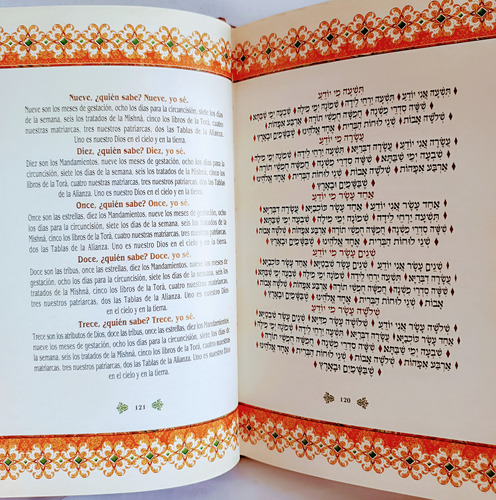 תִּשְׁעָה מִי יוֹדֵעַ
תִּשְׁעָה אֲנִי יוֹדֵעַ ♦ תִּשְׁעָה יַרְחֵי לֵידָה ♦ שְׁמוֹנָה יְמֵי מִילָה ♦ שִׁבְעָה יְמֵי שַׁבַּתָּא
♦ שִׁשָּׁה סִדְרֵי מִשְׁנָה ♦ חֲמִשָּׁה חֻמְשֵׁי תוֹרָה ♦ אַרְבַּע אִמָּהוֹת ♦ שְׁלֹשָׁה
אָבוֹת ♦ שְׁנֵי לוּחוֹת הַבְּרִית ♦ אֶחָד אֱלֹהֵינוּ ♦ שֶׁבַּשָּׁמַיִם וּבָאָרֶץ
עֲשָׂרָה מִי יוֹדֵעַ
עֲשָׂרָה אֲנִי יוֹדֵעַ ♦ עֲשָׂרָה דִבְּרַיָּא ♦ תִּשְׁעָה יַרְחֵי לֵידָה ♦ שְׁמוֹנָה יְמֵי מִילָה ♦
שִׁבְעָה יְמֵי שַׁבַּתָּא ♦ שִׁשָּׁה סִדְרֵי מִשְׁנָה ♦ חֲמִשָּׁה חֻמְשֵׁי תוֹרָה ♦
אַרְבַּע אִמָּהוֹת ♦ שְׁלֹשָׁה אָבוֹת ♦ שְׁנֵי לוּחוֹת הַבְּרִית ♦ אֶחָד אֱלֹהֵינוּ ♦
שֶׁבַּשָּׁמַיִם וּבָאָרֶץ
אַחַד עָשָׂר מִי יוֹדֵעַ
אַחַד עָשָׂר אֲנִי יוֹדֵעַ ♦ אַחַד עָשָׂר כּוֹכְבַיָּא ♦ עֲשָׂרָה דִבְּרַיָּא ♦
תִּשְׁעָה יַרְחֵי לֵידָה ♦ שְׁמוֹנָה יְמֵי מִילָה ♦ שִׁבְעָה יְמֵי שַׁבַּתָּא ♦ שִׁשָּׁה סִדְרֵי
מִשְׁנָה ♦ חֲמִשָּׁה חֻמְשֵׁי תוֹרָה ♦ אַרְבַּע אִמָּהוֹת ♦ שְׁלֹשָׁה אָבוֹת
♦ שְׁנֵי לוּחוֹת הַבְּרִית ♦ אֶחָד אֱלֹהֵינוּ ♦ שֶׁבַּשָּׁמַיִם וּבָאָרֶץ
שְׁנֵים עָשָׂר מִי יוֹדֵעַ
שְׁנֵים עָשָׂר אֲנִי יוֹדֵעַ ♦ שְׁנֵים עָשָׂר שִׁבְטַיָּא ♦ אַחַד עָשָׂר כּוֹכְבַיָּא ♦
עֲשָׂרָה דִבְּרַיָּא ♦ תִּשְׁעָה יַרְחֵי לֵידָה ♦ שְׁמוֹנָה יְמֵי מִילָה ♦ שִׁבְעָה יְמֵי
שַׁבַּתָּא ♦ שִׁשָּׁה סִדְרֵי מִשְׁנָה ♦ חֲמִשָּׁה חֻמְשֵׁי תוֹרָה ♦ אַרְבַּע אִמָּהוֹת ♦ שְׁלֹשָׁה
אָבוֹת ♦ שְׁנֵי לוּחוֹת הַבְּרִית ♦ אֶחָד אֱלֹהֵינוּ ♦ שֶׁבַּשָּׁמַיִם וּבָאָרֶץ
שְׁלֹשָׁה עָשָׂר מִי יוֹדֵעַ
שְׁלֹשָׁה עָשָׂר אֲנִי יוֹדֵעַ ♦ שְׁלֹשָׁה עָשָׂר מִדַּיָּא ♦ שְׁנֵים עָשָׂר שִׁבְטַיָּא ♦ אַחַד
עָשָׂר כּוֹכְבַיָּא ♦ עֲשָׂרָה דִבְּרַיָּא ♦ תִּשְׁעָה יַרְחֵי לֵידָה ♦ שְׁמוֹנָה יְמֵי מִילָה ♦
שִׁבְעָה יְמֵי שַׁבַּתָּא ♦ שִׁשָּׁה סִדְרֵי מִשְׁנָה ♦ חֲמִשָּׁה חֻמְשֵׁי תוֹרָה ♦
אַרְבַּע אִמָּהוֹת ♦ שְׁלֹשָׁה אָבוֹת ♦ שְׁנֵי לוּחוֹת הַבְּרִית ♦ אֶחָד אֱלֹהֵינוּ ♦
שֶׁבַּשָּׁמַיִם וּבָאָרֶץ
120
Nueve, ¿quién sabe? Nueve, yo sé.
Nueve son los meses de gestación, ocho los días para la circuncisión, siete los días
de la semana, seis los tratados de la Mishná, cinco los libros de la Torá, cuatro
nuestras matriarcas, tres nuestros patriarcas, dos las Tablas de la Alianza.
Uno es nuestro Dios en el cielo y en la tierra.
Diez, ¿quién sabe? Diez, yo sé.
Diez son los Mandamientos, nueve los meses de gestación, ocho los días para
la circuncisión, siete los días de la semana, seis los tratados de la Mishná, cinco
los libros de la Torá, cuatro nuestras matriarcas, tres nuestros patriarcas, dos las Tablas
de la Alianza. Uno es nuestro Dios en el cielo y en la tierra.
Once, ¿quién sabe? Once, yo sé.
Once son las estrellas, diez los Mandamientos, nueve los meses de gestación, ocho
los días para la circuncisión, siete los días de la semana, seis los tratados de la
Mishná, cinco los libros de la Torá, cuatro nuestras matriarcas, tres nuestros patriarcas,
dos las Tablas de la Alianza. Uno es nuestro Dios en el cielo y en la tierra.
Doce, ¿quién sabe? Doce, yo sé.
Doce son las tribus, once las estrellas, diez los Mandamientos, nueve los meses de
gestación, ocho los días para la circuncisión, siete los días de la semana, seis los
tratados de la Mishná, cinco los libros de la Torá, cuatro nuestras matriarcas, tres
nuestros patriarcas, dos las Tablas de la Alianza. Uno es nuestro Dios
en el cielo y en la tierra.
Trece, ¿quién sabe? Trece, yo sé.
Trece son los atributos de Dios, doce las tribus, once las estrellas, diez los Mandamientos,
nueve los meses de gestación, ocho los días para la circuncisión, siete los días de
la semana, seis los tratados de la Mishná, cinco los libros de la Torá, cuatro nuestras
matriarcas, tres nuestros patriarcas, dos las Tablas de la Alianza. Uno es nuestro Dios
en el cielo y en la tierra.
121